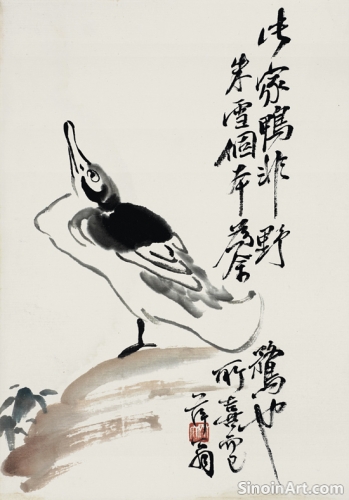 此家鴨非野鶩也
朱雪個本為余
所喜而已
萍翁
SinoinArt.com